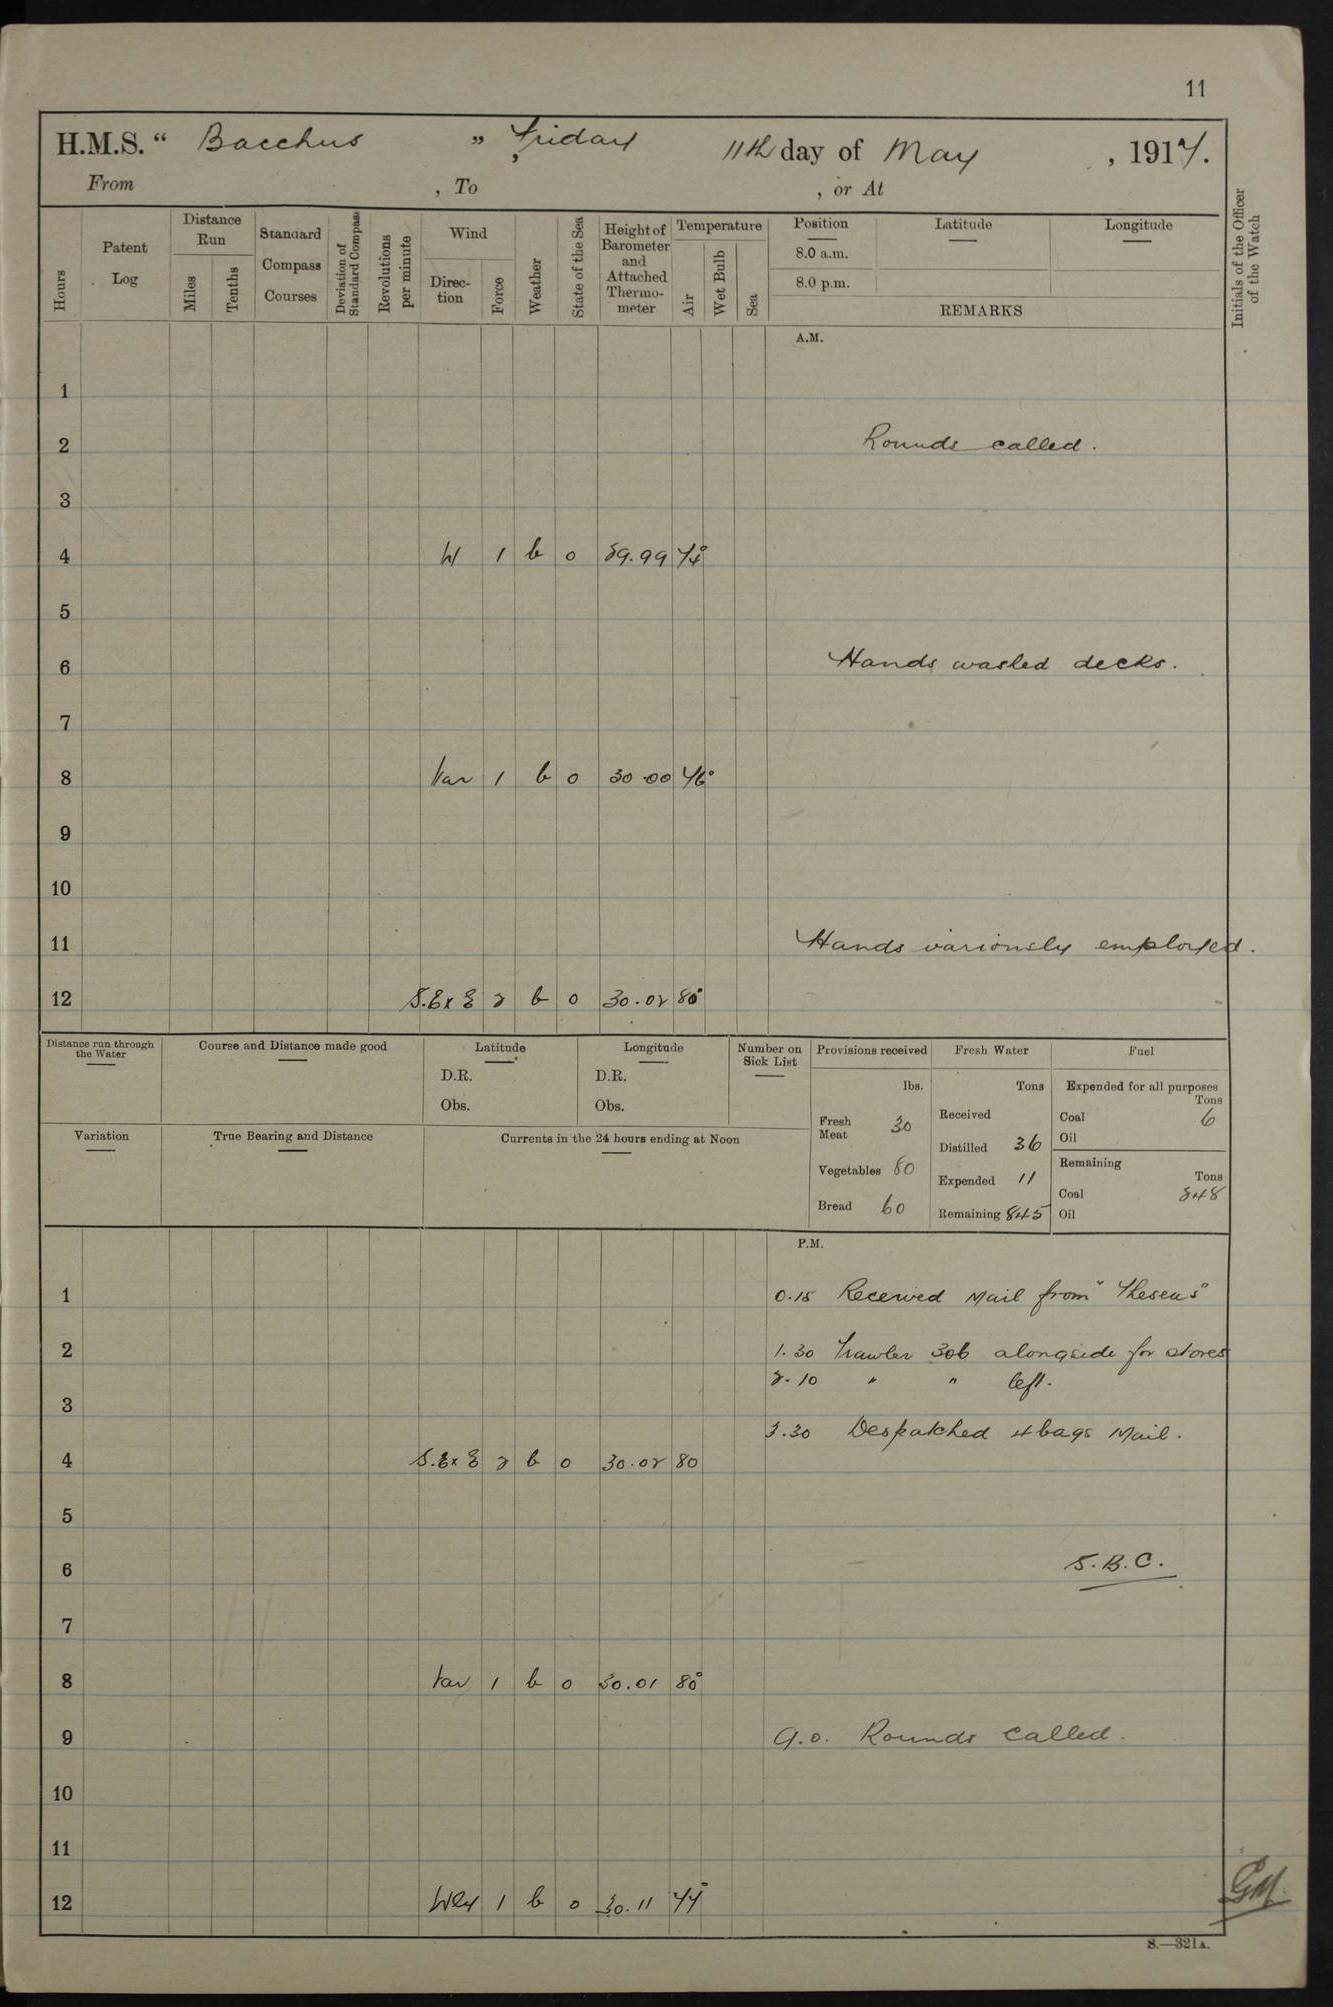 11
H.M.S. “ Bacchus ” , Friday 11th day of May , 1917.
From , To , or At
Hours
Patent Log
Distance Run
Miles
Tenths
Standard Compass Courses
Deviation of Standard Compass
Revolutions per minute
Wind
Direc-tion
Force
Weather
State of the Sea
Height of Barometer and Attached Thermo-meter
Temperature
Air
Wet Bulb
Sea
Position
8.0 a.m.
8.0 p.m.
Latitude
Longitude
REMARKS
Initials of the Officer of the Watch
A.M.
1
2 Rounds called.
3
4 W 1 b o 29.99 74°
5
6 Hands washed decks.
7
8 Var 1 b o 30.00 76°
9
10
11 Hands variously employed.
12 S.E x E 2 b o 30.02 80°
Distance run through the Water
Course and Distance made good
Latitude
D.R.
Obs.
Longitude
D.R.
Obs.
Number on Sick List
Variation
True Bearing and Distance
Currents in the 24 hours ending at Noon
Provisions received
lbs.
Fresh Meat 30
Vegetables 80
Bread 60
Fresh Water
Tons
Received
Distilled 36
Expended 11
Remaining 845
Fuel
Expended for all purposes
Tons
Coal 6
Oil
Remaining
Tons
Coal 848
Oil
P.M.
1 0.15 Received Mail from "Theseus"
2 1.30 Trawler 306 alongside for stores
2.10 " " left.
3
3.30 Despatched 4 bags Mail.
4 S.E x E 2 b o 30.02 80
5
6 S.B.C.
7
8 Var 1 b o 30.01 80°
9 9.0. Rounds called.
10
11
12 Wly 1 b o 30.11 77°
GM
S.—321A.